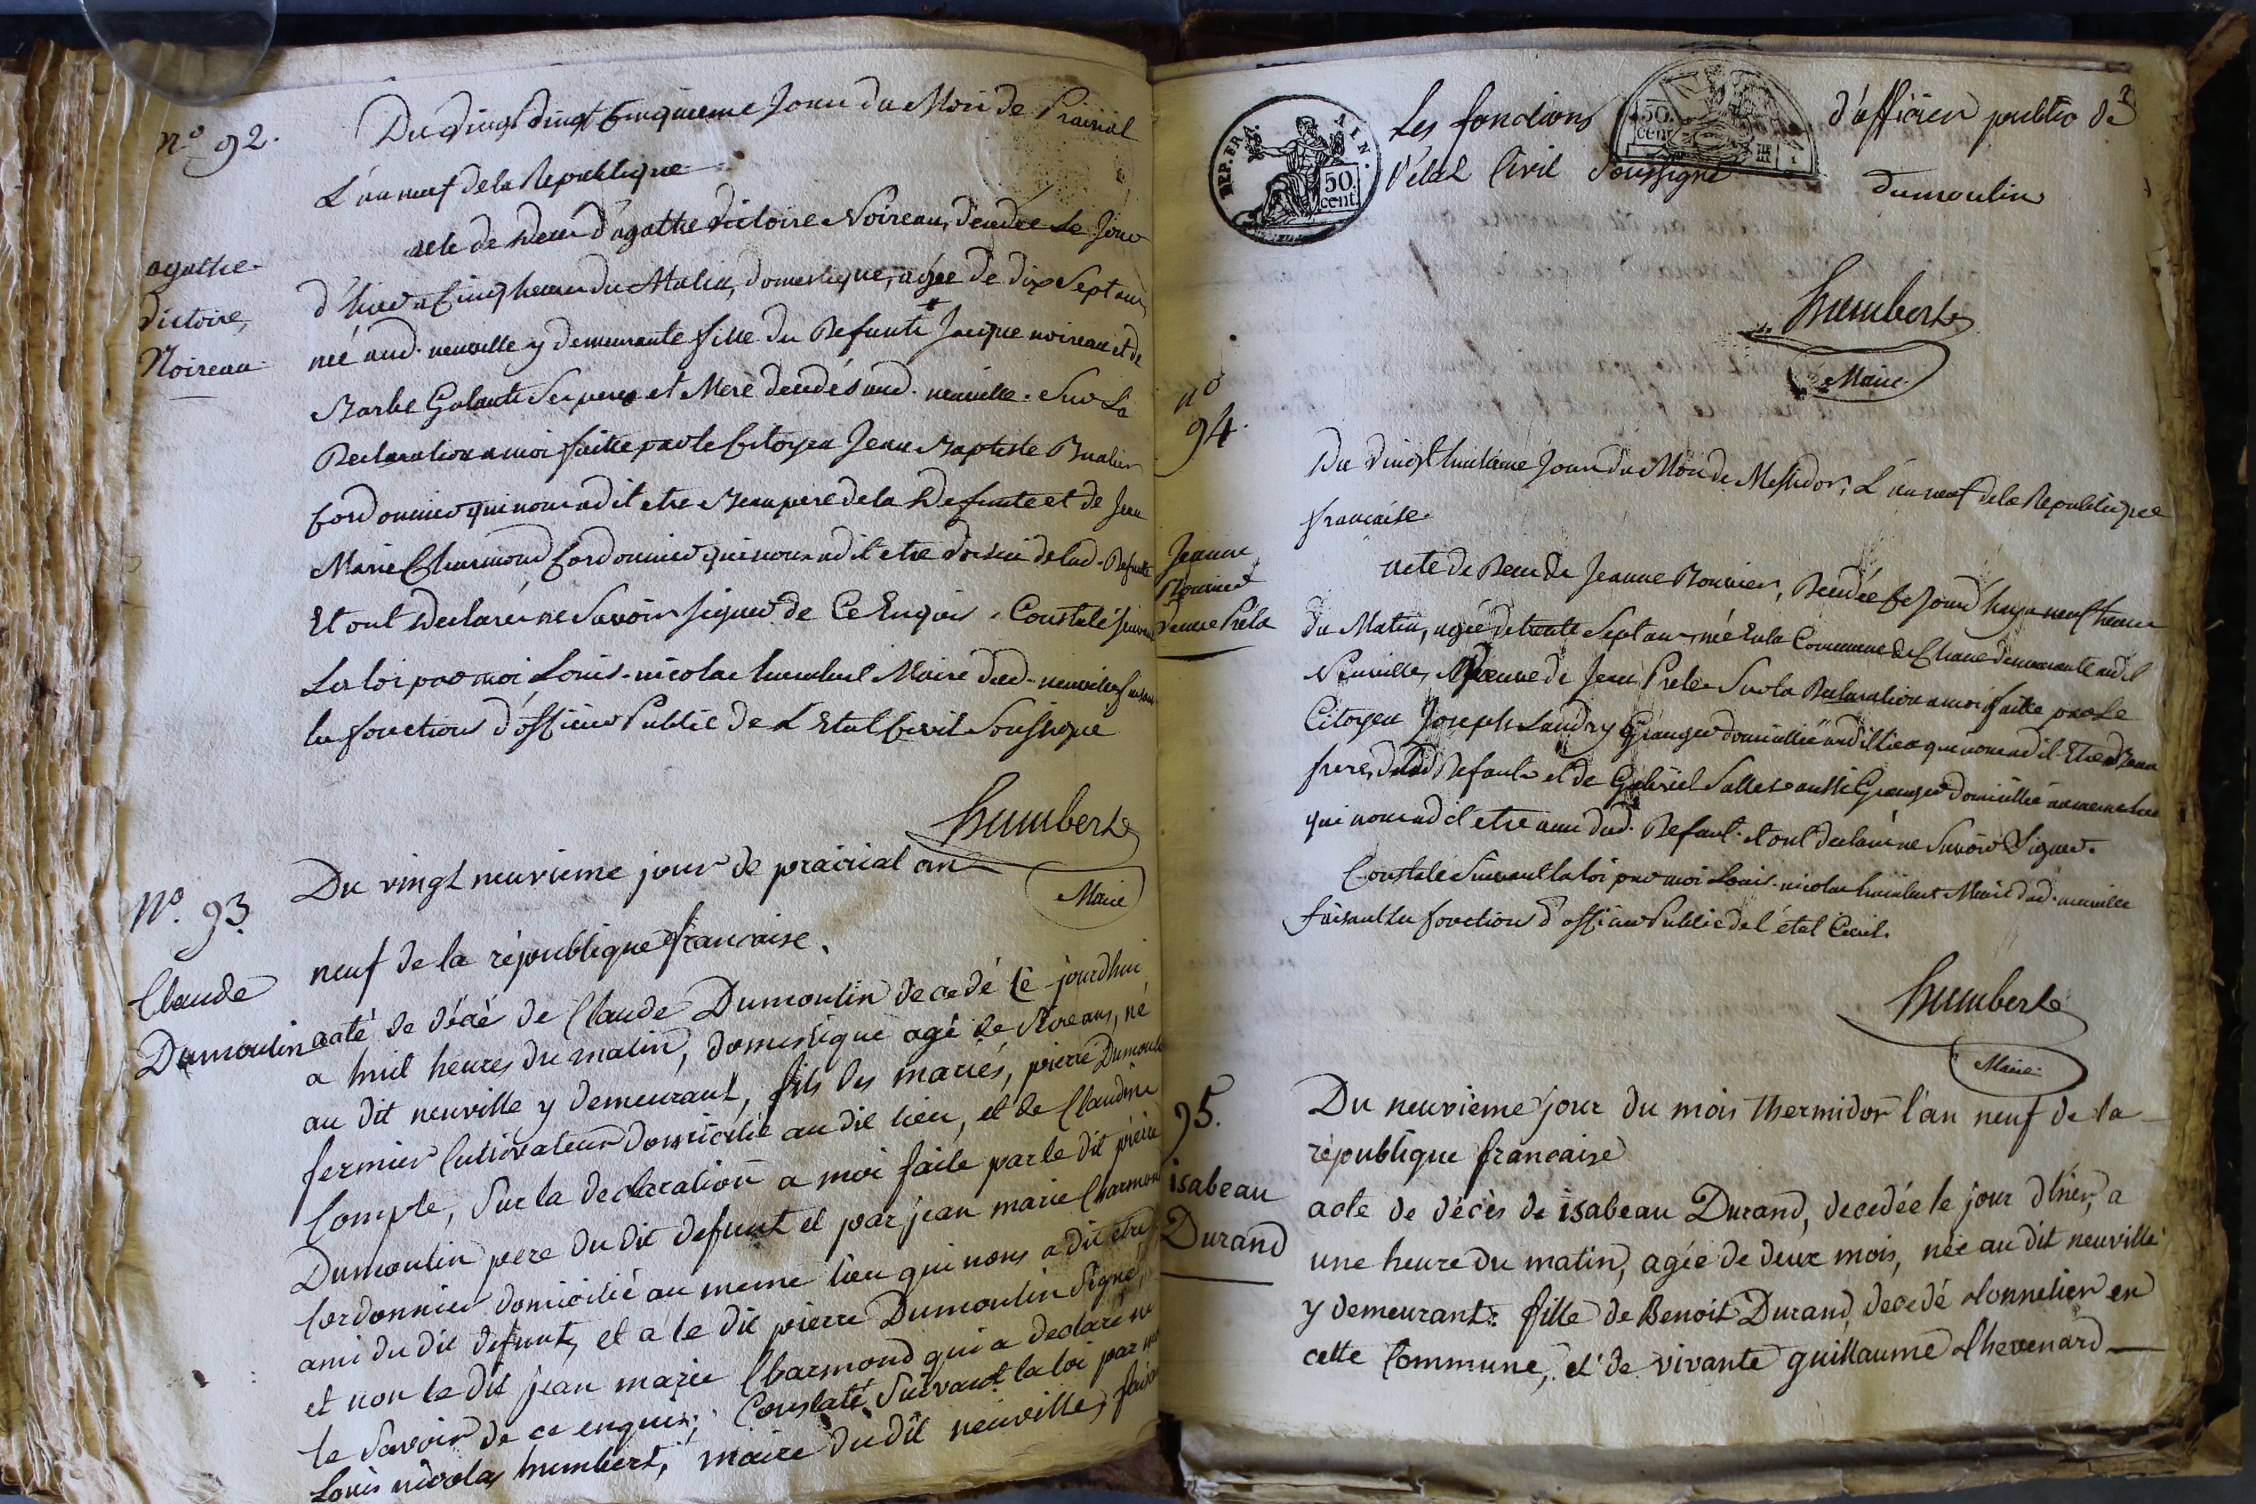 n° 92.
Du vingt cinquieme Jour du Mois de Prairial
L'an neuf de la Republique
agathe
Victoire
Noireau
acte de Deces d'agathe Victoire Noireau, Decedée Le Jour
d'hier a Cinq heures du Matin, domestique, agée de dix Sept ans
née aud. neuville y demeurante fille du Defunte Jacque noireau et de
Marbe Galante Ses peres et Mere decedés aud. neuville. Sur La
Declaration a moi faitte par le Citoyen Jean Baptiste
Cordonnier qui nous a dit etre Beaupere de la Defunte et de Jean
Marie Charmond Cordonnier qui nous a dit etre Voisin de lad. Defunte
Et ont Declaré ne Savoir Signer de Ce Enquis. Constaté Suivant
La loi par moi Louis nicolas humbert Maire dud. neuville faisant
les fonctions d'officier Public de L'Etat Civil Soussigné
humbert
Maire
N°. 93
Du vingt neuvieme jour de prairial an
neuf de la république francaise.
Claude
Dumoulin
acté de décé de Claude Dumoulin decedé Ce jourdhui
a huit heures du matin, domestique agé de ans, né
au dit neuville y demeurant, fils des mariés, pierre Dumoulin
fermier Cultivateur domicilié au dit lieu, et de Claudine
Compte, Sur la declaration a moi faite par le dit pierre
Dumoulin pere du dit defunt et par jean marie Charmond
Cordonnier domicilié au meme lieu qui nous a dit être
ami du dit defunt, et a le dit pierre Dumoulin Signé
et non le dit jean marie Charmond qui a declaré ne
le Savoir de ce enquis; Constaté Suivant la loi par moi
Louis nicolas humbert, maire du dit neuville, faisant
REP. FRA. 50. cent.
50. cent
Les fonctions d'officier public de
l'état Civil Soussigné
Dumoulin
humbert
Maire
n°
94.
Du Vingt huitieme Jour du Mois de Messidor, L'an neuf de la Republique
francaise.
Jeanne
Bouvier
Veuve Prela
acte de Deces de Jeanne Bouvier, Decedée Ce Jourd'huy a neuf heures
du Matin, agée de trente Sept ans née En la Commune de Chane demeurante audit
Neuville, Veuve de Jean Prele. Sur la Declaration a moi faitte par Le
Citoyen Joseph Landry Granger domicillié audit lieu qui nous a dit Etre Beau
frere de lad Defunte et de Gabriel Sallet aussi Granger domicillié au meme lieu
qui nous a dit etre ami dud. Defunt. et ont declaré ne Savoir Signer.
Constaté Suivant la loi par moi Louis nicolas humbert Maire dud. neuville
faisant les fonction d'officier Public de l'état Civil.
humbert
Maire
95.
Du neuvieme jour du mois thermidor l'an neuf de la
république francaise
isabeau
Durand
acte de décès de isabeau Durand, decedée le jour d'hier, a
une heure du matin, agée de deux mois, née au dit neuville
y demeurant: fille de Benoit Durand, decedé tonnelier en
cette Commune, et de vivante guillaume Chevenard